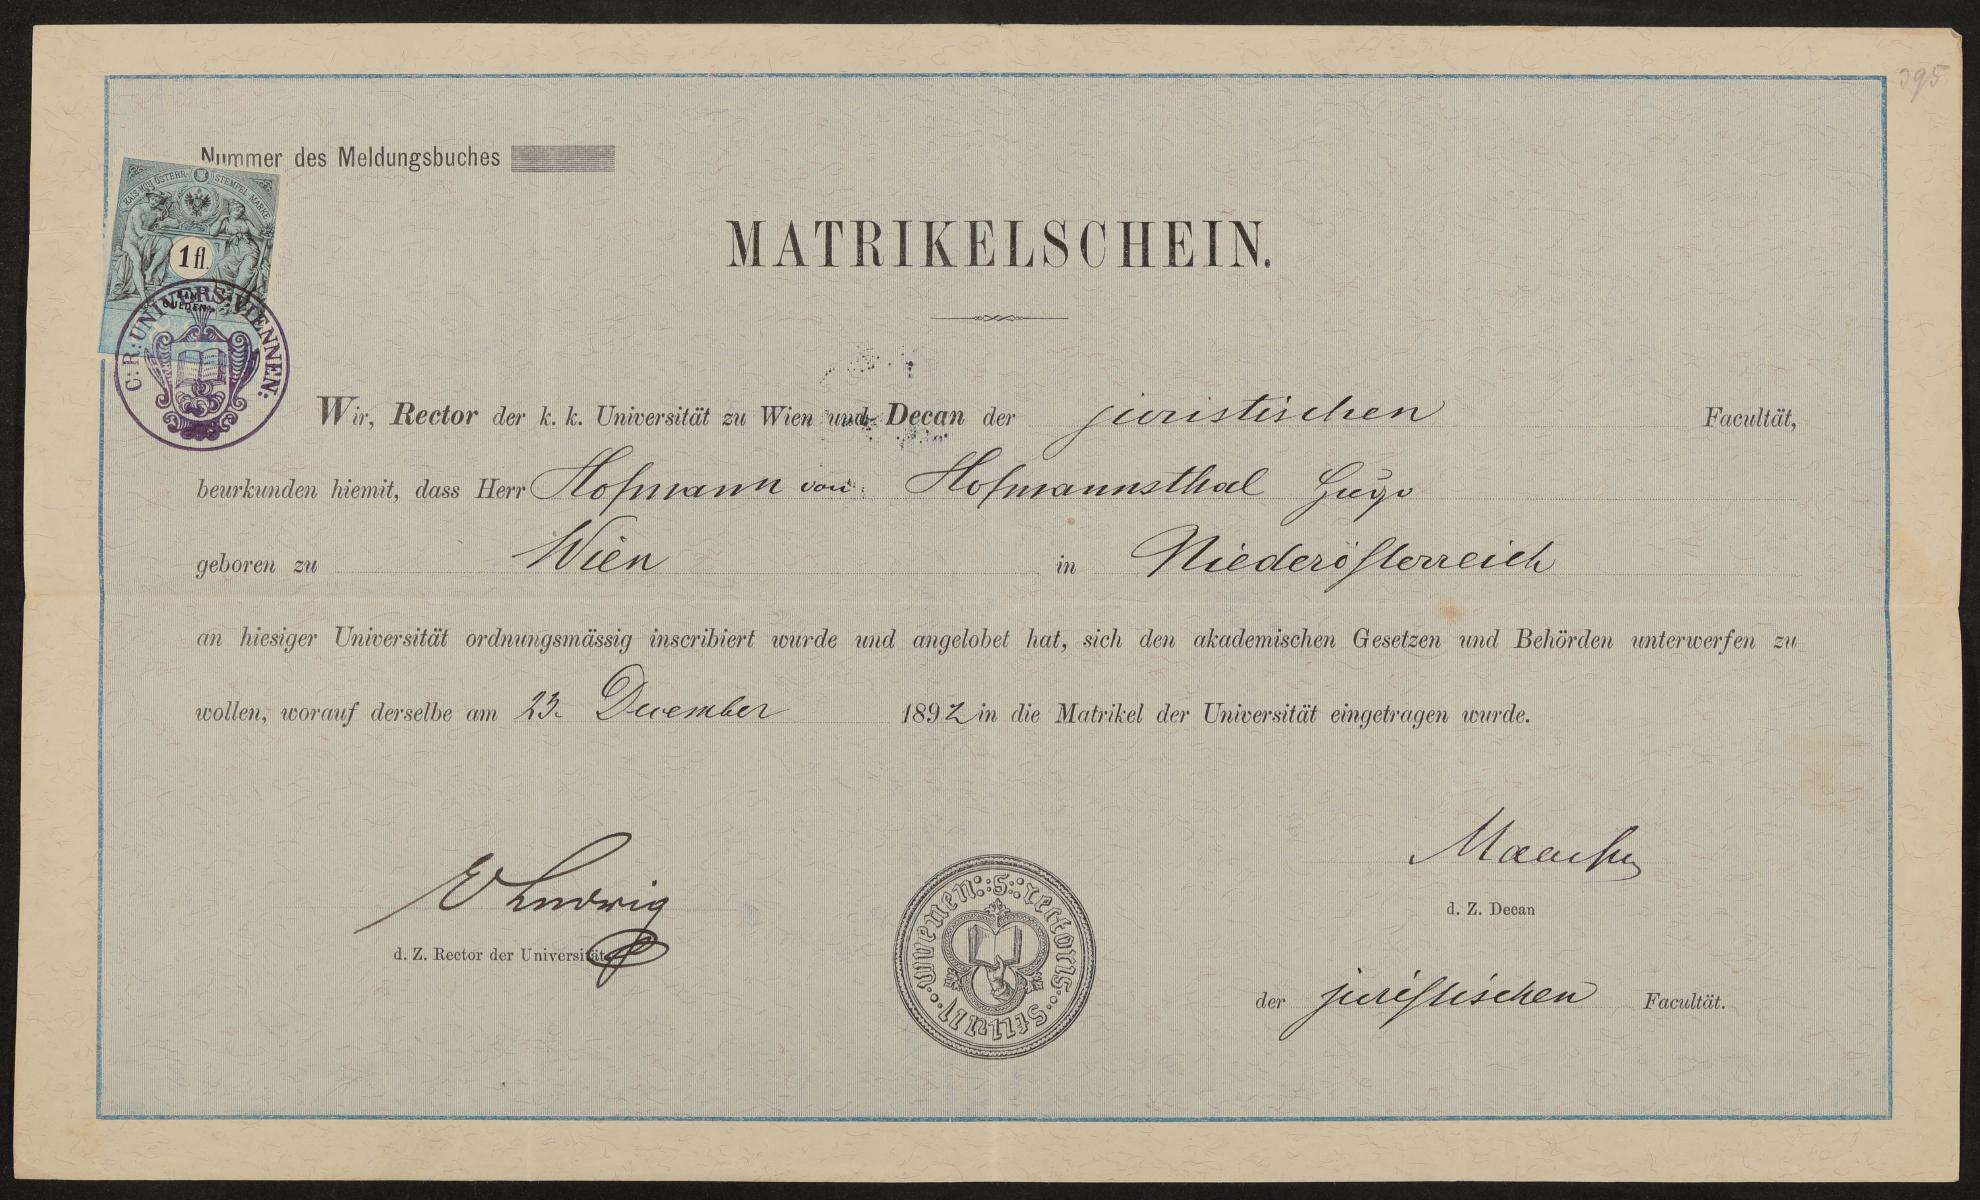 395
Nummer des Meldungsbuches
KAIS. KÖN. ÖSTERR. STEMPEL-MARKE
1 fl.
GULDEN
C: R: UNIVERS: VIENNEN:
MATRIKELSCHEIN.
Wir, Rector der k. k. Universität zu Wien und Decan der juristischen Facultät,
beurkunden hiemit, dass Herr Hofmann von Hofmannsthal Hugo
geboren zu Wien in Niederösterreich
an hiesiger Universität ordnungsmässig inscribiert wurde und angelobet hat, sich den akademischen Gesetzen und Behörden unterwerfen zu
wollen, worauf derselbe am 23. December 1892 in die Matrikel der Universität eingetragen wurde.
E Ludwig
d. Z. Rector der Universität
d. Z. Decan
der juristischen Facultät.
s: rectoris